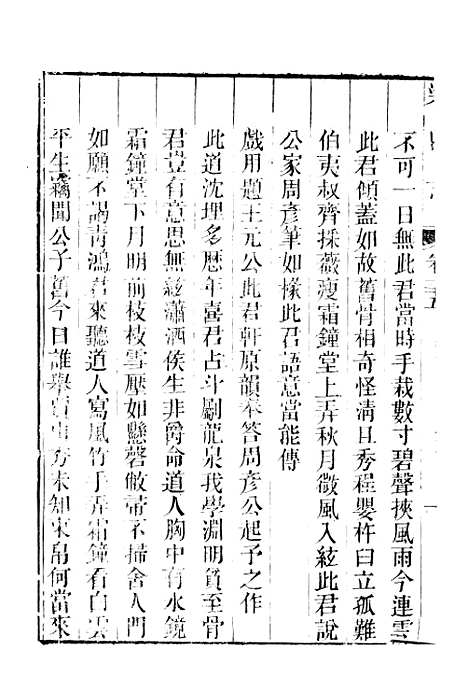 不可一日無此君當時手栽數寸碧聲挾風雨今連雲
此君傾蓋如故舊骨相奇怪清且秀程嬰杵臼立孤難
伯夷叔齊採薇瘦霜鐘堂上弄秋月微風入絃此君說
公家周彥筆如椽此君語意當能傳
戲用題王元公此君軒原韻奉答周彥公起予之作
此道沈理多歷年喜君占斗劚龍泉我學淵明貧至骨
君豈有意思無絃瀟洒侯生非爵命道人胸中有水鏡
霜鐘堂下月明前枝枝雪壓如懸磬敝帚不掃舍人門
如願不謁靑鴻君來聽道人寫風竹手弄霜鐘看白雲
平生竊聞公子舊今日誰舉賈生秀未知束帛何當來